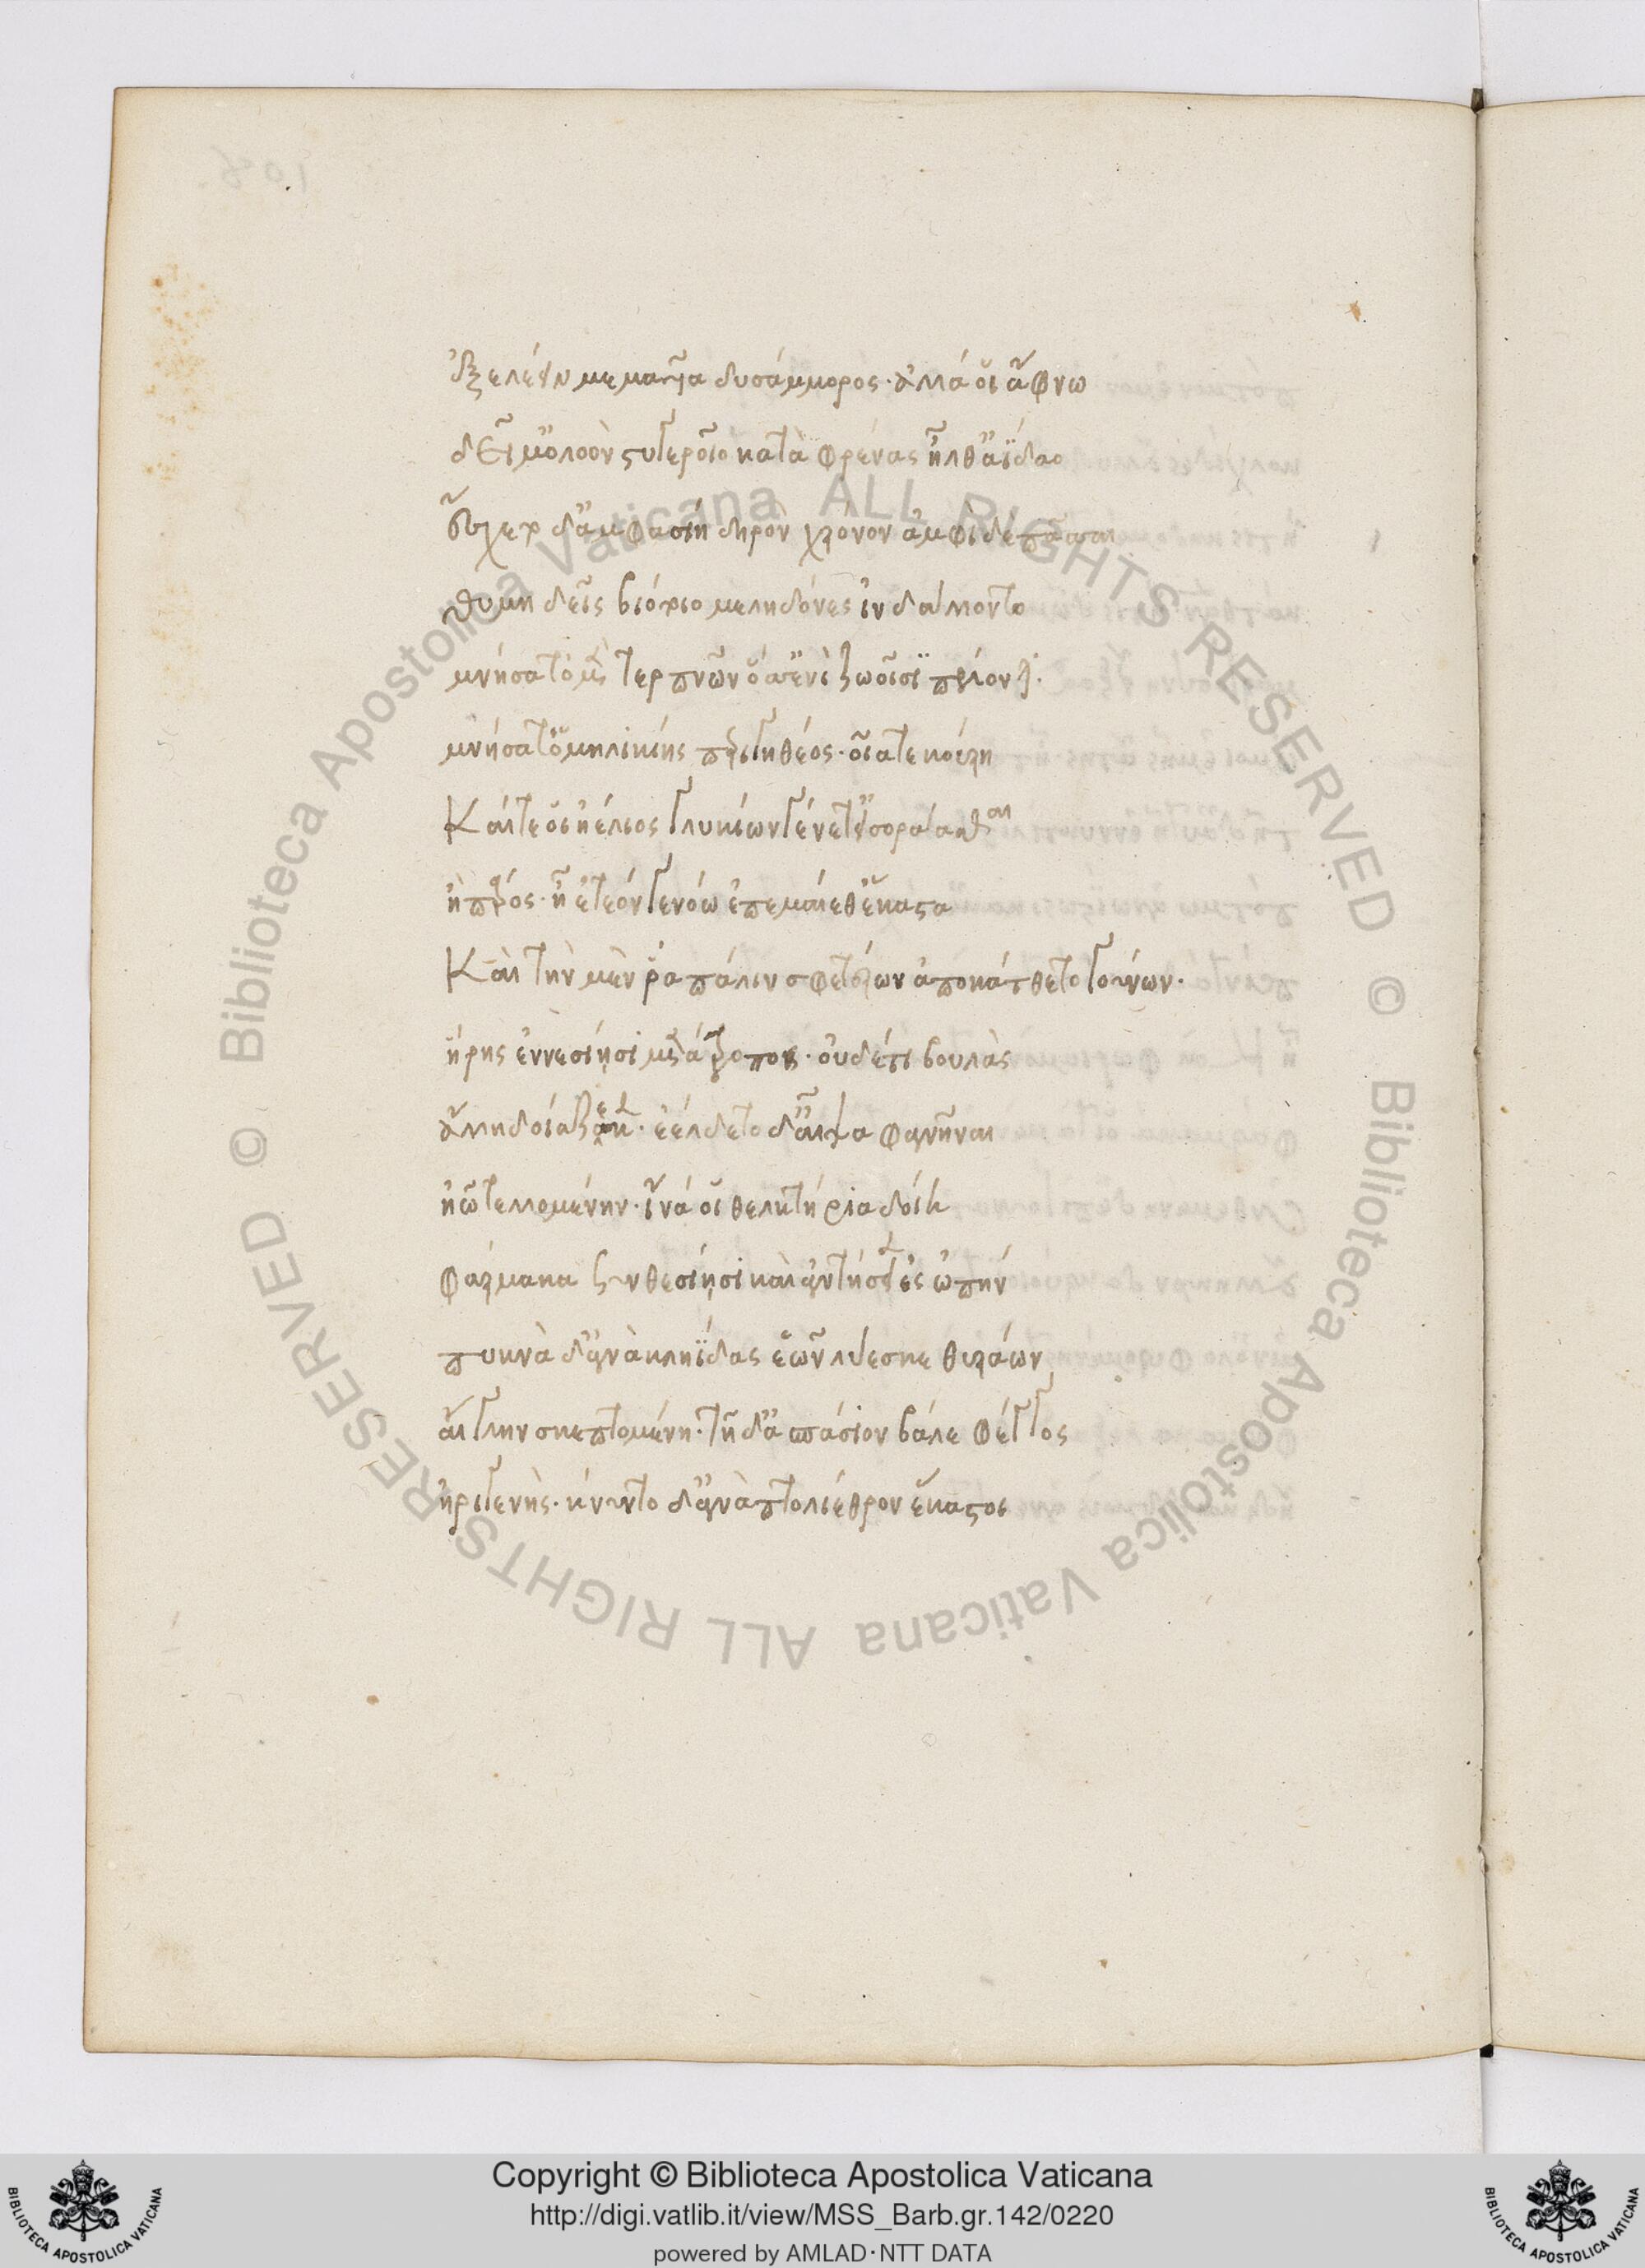 ἐξελέειν μεμαυῖα δυσάμμορος· ἀλλά οἱ ἄφνω
δεῖμ' ὀλοὸν στυγεροῖο κατὰ φρένας ἦλθ' ἀΐδαο
ἔσχετο δ' ἀμφασίη δηρὸν χρόνον ἀμφὶ δὲ πᾶσαι
θυμηδεῖς βιότοιο μεληδόνες ἰνδάλλοντο
μνήσατο μὲν τερπνῶν ὅσ' ἐνὶ ζωοῖσι πέλονται·
μνήσαθ' ὁμηλικίης περιγηθέος· οἷά τε κούρη
Καί τέ οἱ ἠέλιος γλυκίων γένετ' εἰσοράασθαι
ἢ πάρος· ἢ ἐτεόν γε νόῳ ἐπεμαίεθ' ἕκαστα
Καὶ τὴν μέν ῥα πάλιν σφετέρων ἀποκάτθετο γούνων·
ἥρης ἐννεσίῃσι μετάτροπος· οὐδέ τι βουλὰς
ἄλλῃ δοιάζεσκεν· ἐέλδετο δ' αἶψα φανῆναι
ἠῶ τελλομένην· ἵνά οἱ θελκτήρια δοίη
φάρμακα συνθεσίῃσι καὶ ἀντήσειεν ἐς ὠπήν
πυκνὰ δ' ἀνὰ κληῗδας ἑῶν λύεσκε θυράων
αἴγλην σκεπτομένη· τῇ δ' ἀσπάσιον βάλε φέγγος
ἠριγενής· κίνυντο δ' ἀνὰ πτολίεθρον ἕκαστοι
Copyright © Biblioteca Apostolica Vaticana
http://digi.vatlib.it/view/MSS_Barb.gr.142/0220
powered by AMLAD·NTT DATA